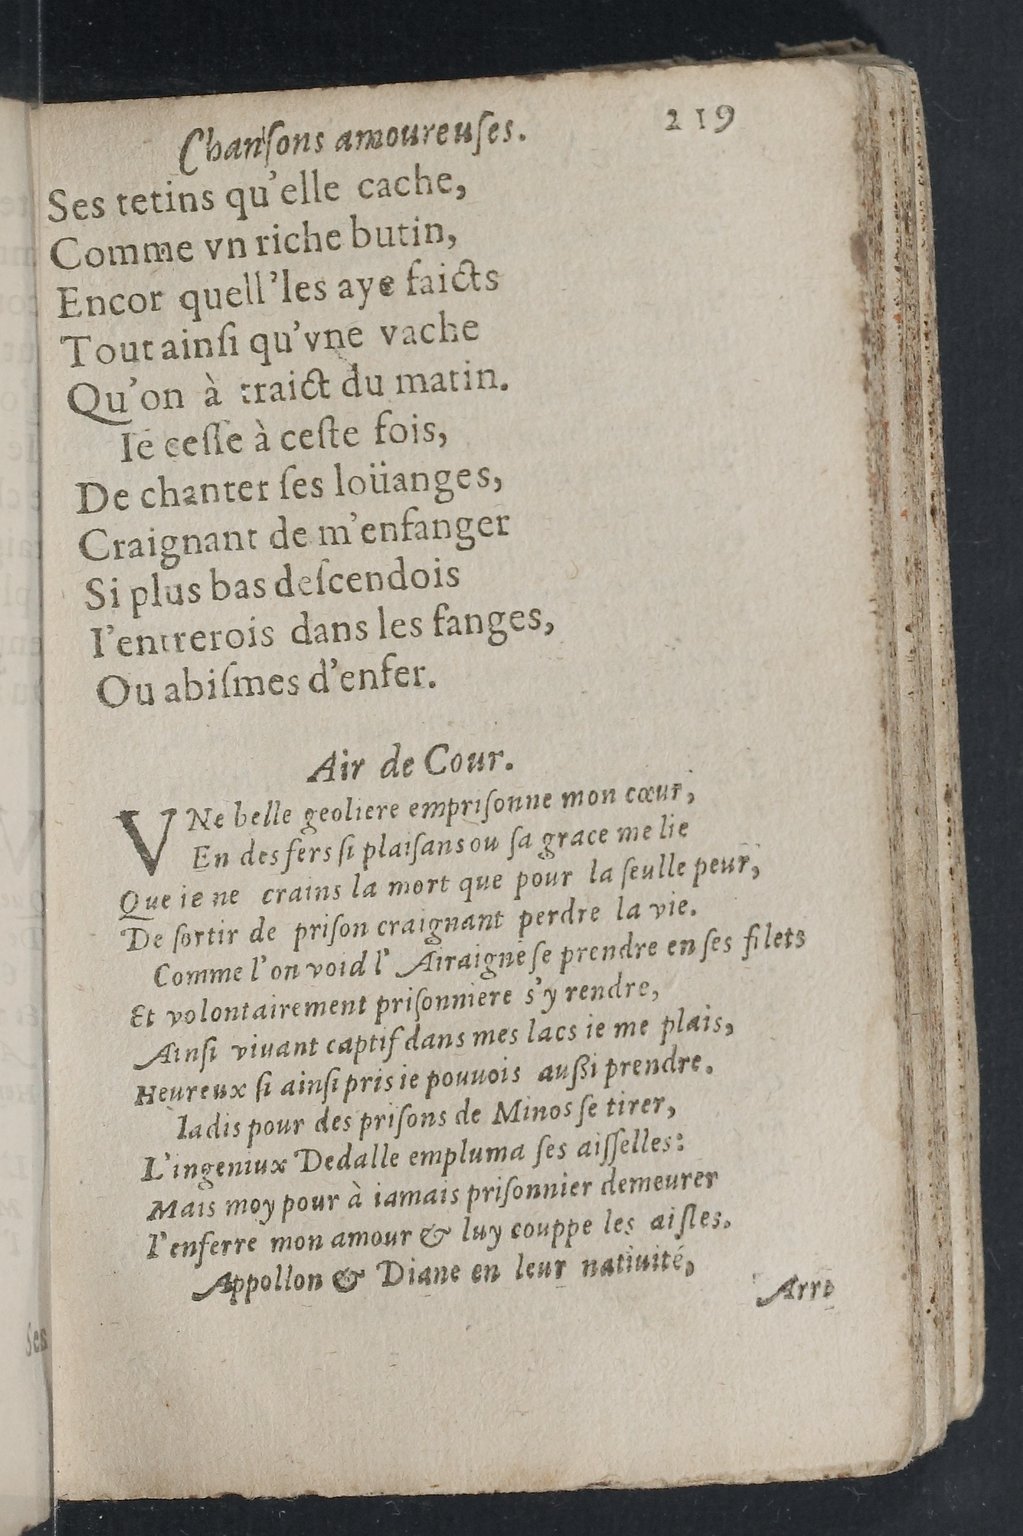 Chanſons amoureuſes. 219
Ses tetins qu'elle cache,
Comme vn riche butin,
Encor quell'les aye faicts
Tout ainſi qu'vne vache
Qu'on à traict du matin.
Ie ceſſe à ceſte fois,
De chanter ſes loüanges,
Craignant de m'enfanger
Si plus bas deſcendois
I'entrerois dans les fanges,
Ou abiſmes d'enfer.
Air de Cour.
VNe belle geoliere empriſonne mon cœur,
En des fers ſi plaiſans ou ſa grace me lie
Que ie ne crains la mort que pour la ſeulle peur,
De ſortir de priſon craignant perdre la vie.
Comme l'on void l'Airaigne ſe prendre en ſes filets
Et volontairement priſonniere s'y rendre,
Ainſi viuant captif dans mes lacs ie me plais,
Heureux ſi ainſi pris ie pouuois auſsi prendre.
Iadis pour des priſons de Minos ſe tirer,
L'ingeniux Dedalle empluma ſes aiſſelles:
Mais moy pour à iamais priſonnier demeurer
I'enferre mon amour & luy couppe les aiſles.
Appollon & Diane en leur natiuité,
Arre
Ses